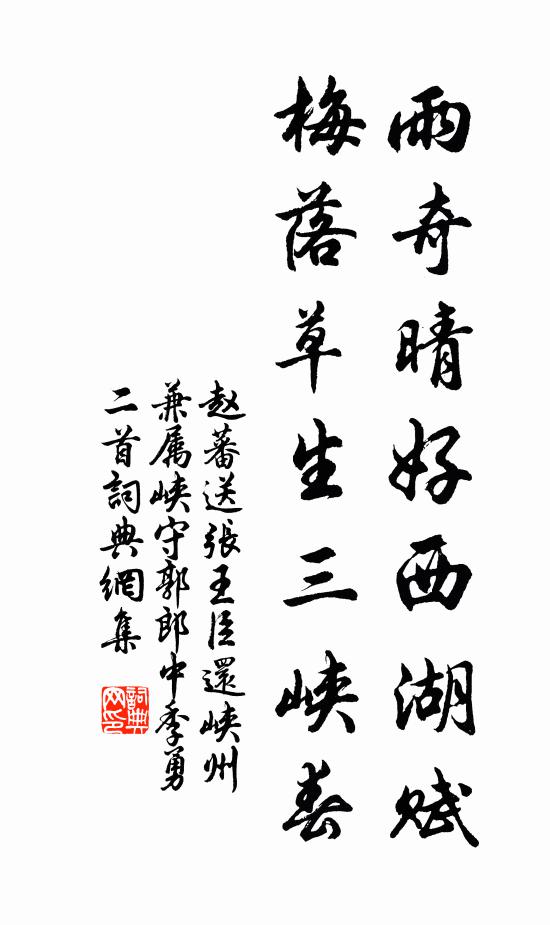 雨奇晴好西湖赋
梅落草生三峡春
赵蕃送張王臣還峡州
兼属峡守郭郎中季勇
二首詞典網集
詞典
网印